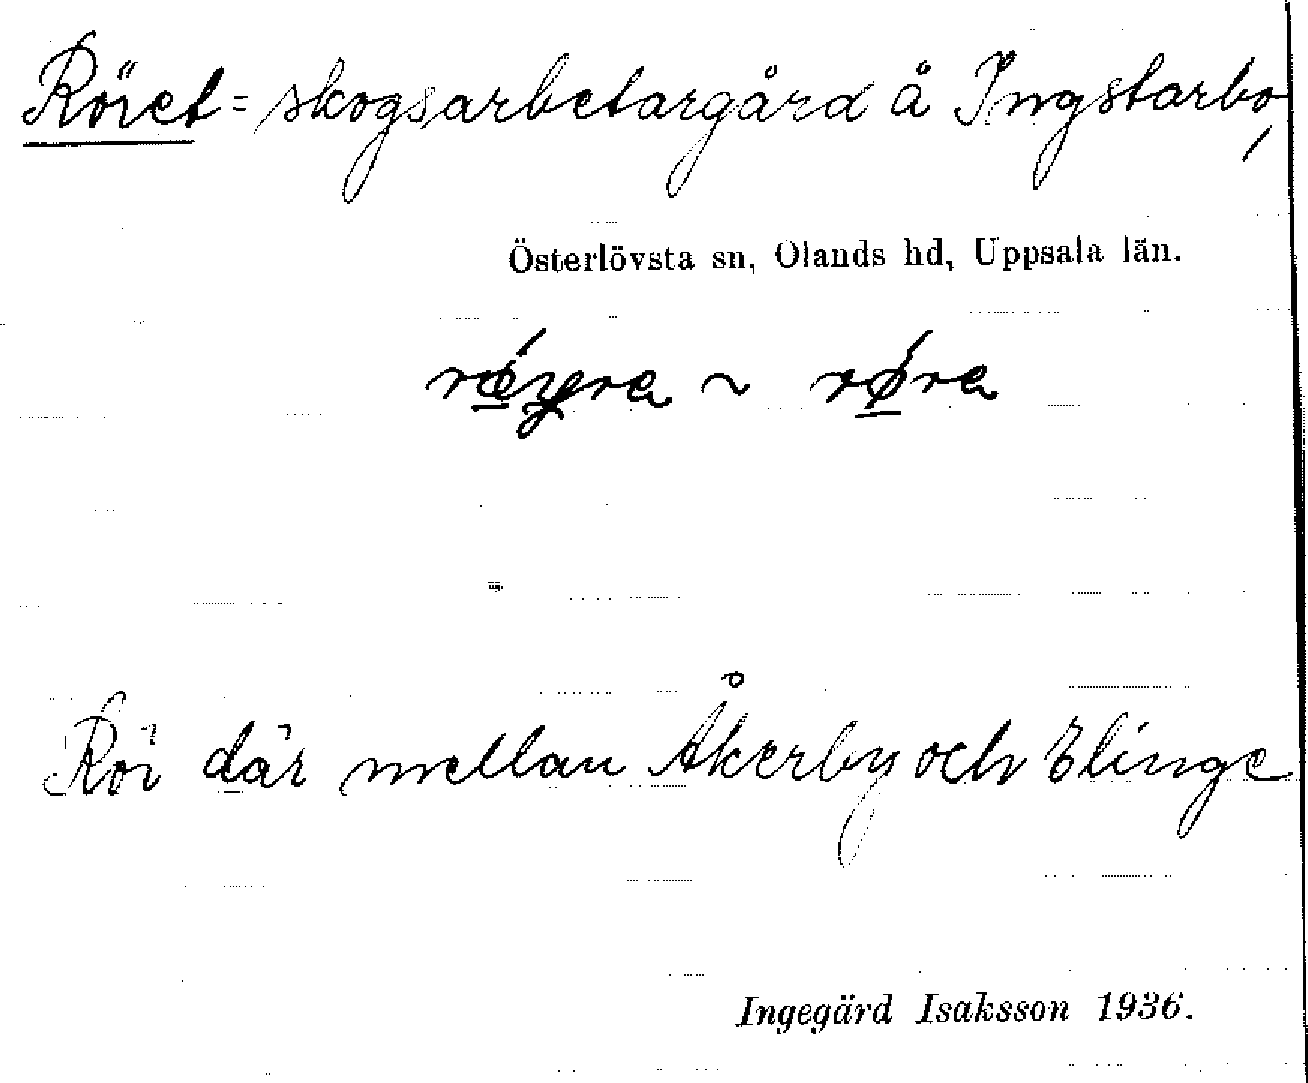 Röret = skogsarbetargård å Ingstarbo,
Österlövsta sn, Olands hd, Uppsala län.
~ rǿra
Rör där mellan Åkerby och Elinge
Ingegärd Isaksson 1936.